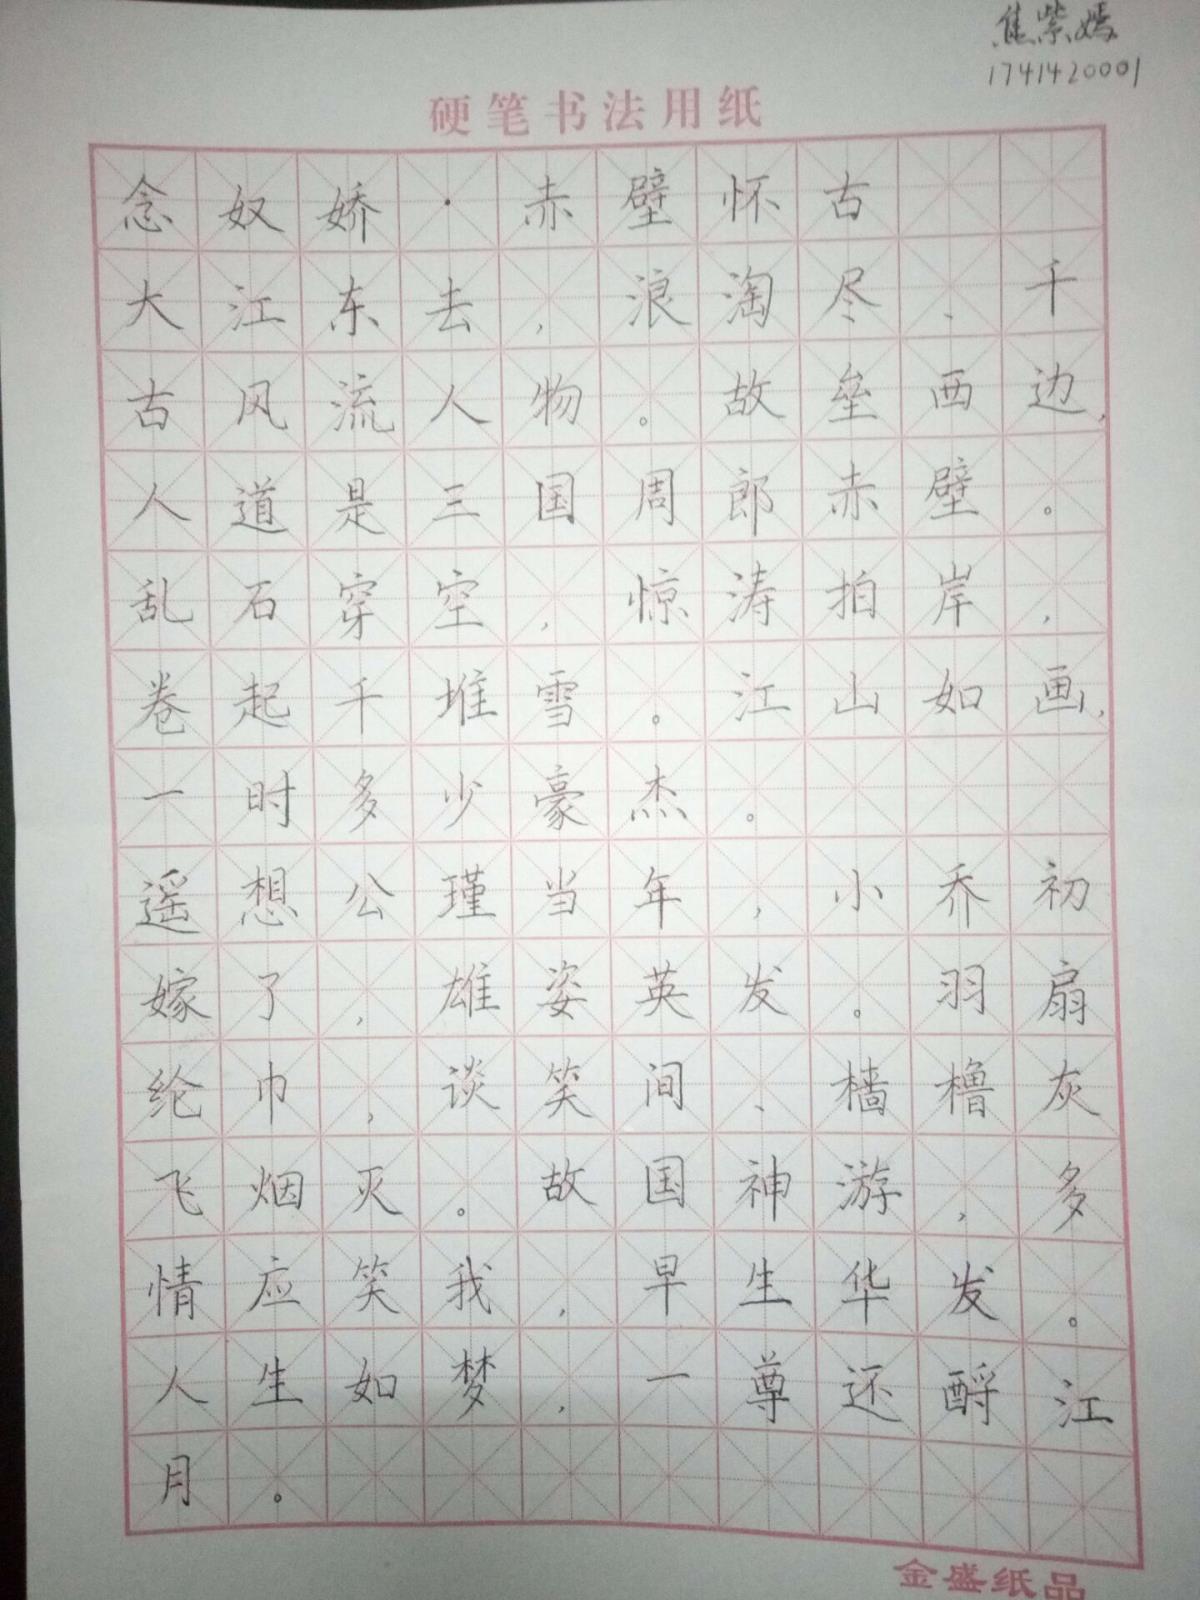 焦紫嫣
1741420001
硬笔书法用纸
念奴娇·赤壁怀古
大江东去，浪淘尽、千
古风流人物。故垒西边，
人道是三国周郎赤壁。
乱石穿空，惊涛拍岸，
卷起千堆雪。江山如画，
一时多少豪杰。
遥想公瑾当年，小乔初
嫁了，雄姿英发。羽扇
纶巾，谈笑间、樯橹灰
飞烟灭。故国神游，多
情应笑我，早生华发。
人生如梦，一尊还酹江
月。
金盛纸品